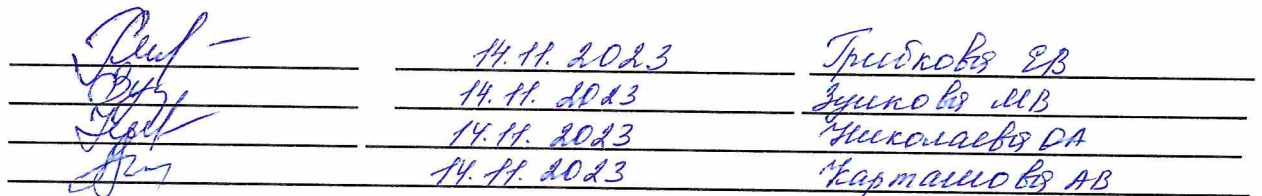 14.11.2023 Грибкова ЕВ
14.11.2023 Зуйкова МВ
14.11.2023 Николаева ОА
14.11.2023 Карташова АВ